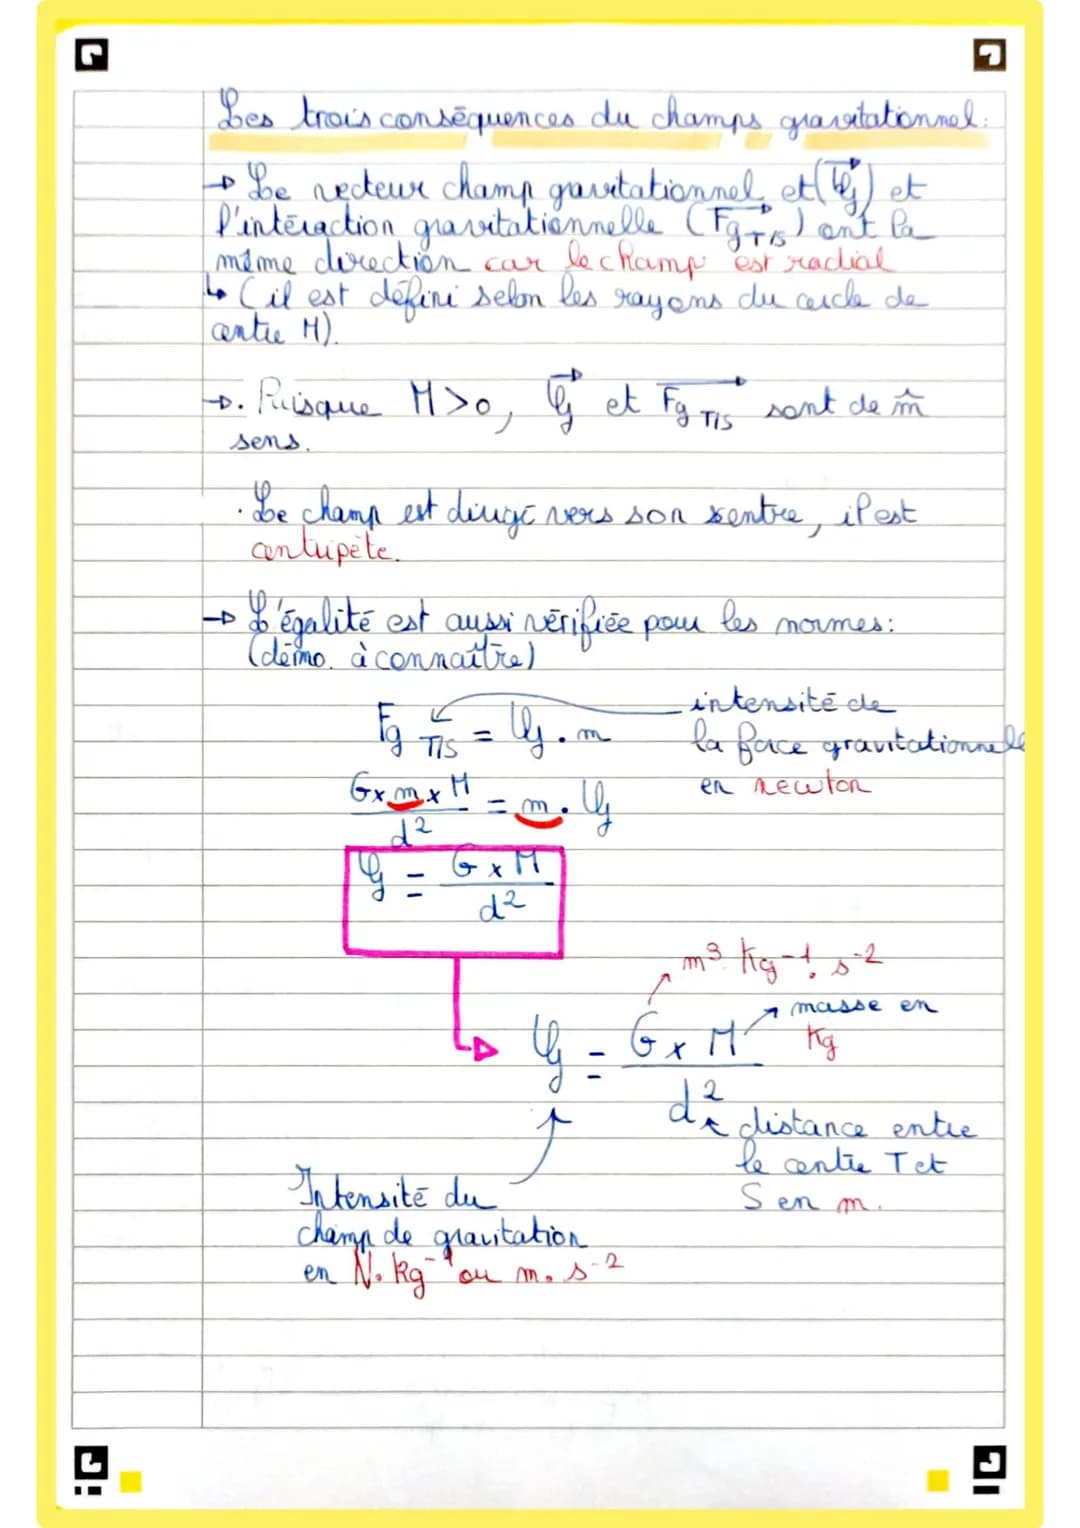 Les trois conséquences du champs gravitationnel:
→ Le vecteur champ gravitationnel et (𝒢) et
l'intéraction gravitationnelle (Fg T/S) ont la
même direction car le champ est radial
↳ (il est défini selon les rayons du cercle de
centre M).
→. Puisque M>0, 𝒢 et Fg T/S sont de m̂
sens.
· Le champ est dirigé vers son centre, il est
centripète.
→ L'égalité est aussi vérifiée pour les normes:
(démo. à connaître)
Fg T/S = 𝒢 . m
intensité de
la force gravitationnelle
en newton
G x m x M / d² = m . 𝒢
𝒢 = G x M / d²
m³. kg⁻¹. s⁻²
masse en
kg
𝒢 = G x M / d²
distance entre
le centre T et
S en m.
Intensité du
champ de gravitation
en N. kg⁻¹ ou m. s⁻²